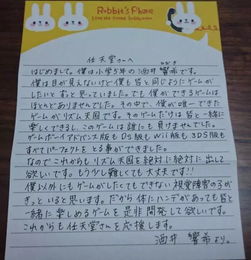 Rabbit's Phone
任天堂さんへ
はじめまして。僕は小学5年の酒井響希です。
僕は目が見えないけど僕も皆と同じようにゲームが
したいとずっと思っていました。でも僕ができるゲームは
ほとんどありませんでした。その中で、僕が唯一できた
ゲームがリズム天国です。そのゲームだけは皆と一緒に
楽しくできるし、このゲームは誰にも負けませんでした。
ゲームボーイアドバンス版もDS版もWii版も3DS版も
すべてパーフェクトをとる事ができました。
なのでこれからもリズム天国を絶対に絶対に出して
欲しいです。もう少し難しくても大丈夫です!!
僕以外にもゲームがしたくてもできない視覚障害の子が
きっといると思います。だから体にハンデがあっても皆と
一緒に楽しめるゲームを是非開発して欲しいです。
これからも任天堂さんを応援します。
酒井 響希より。